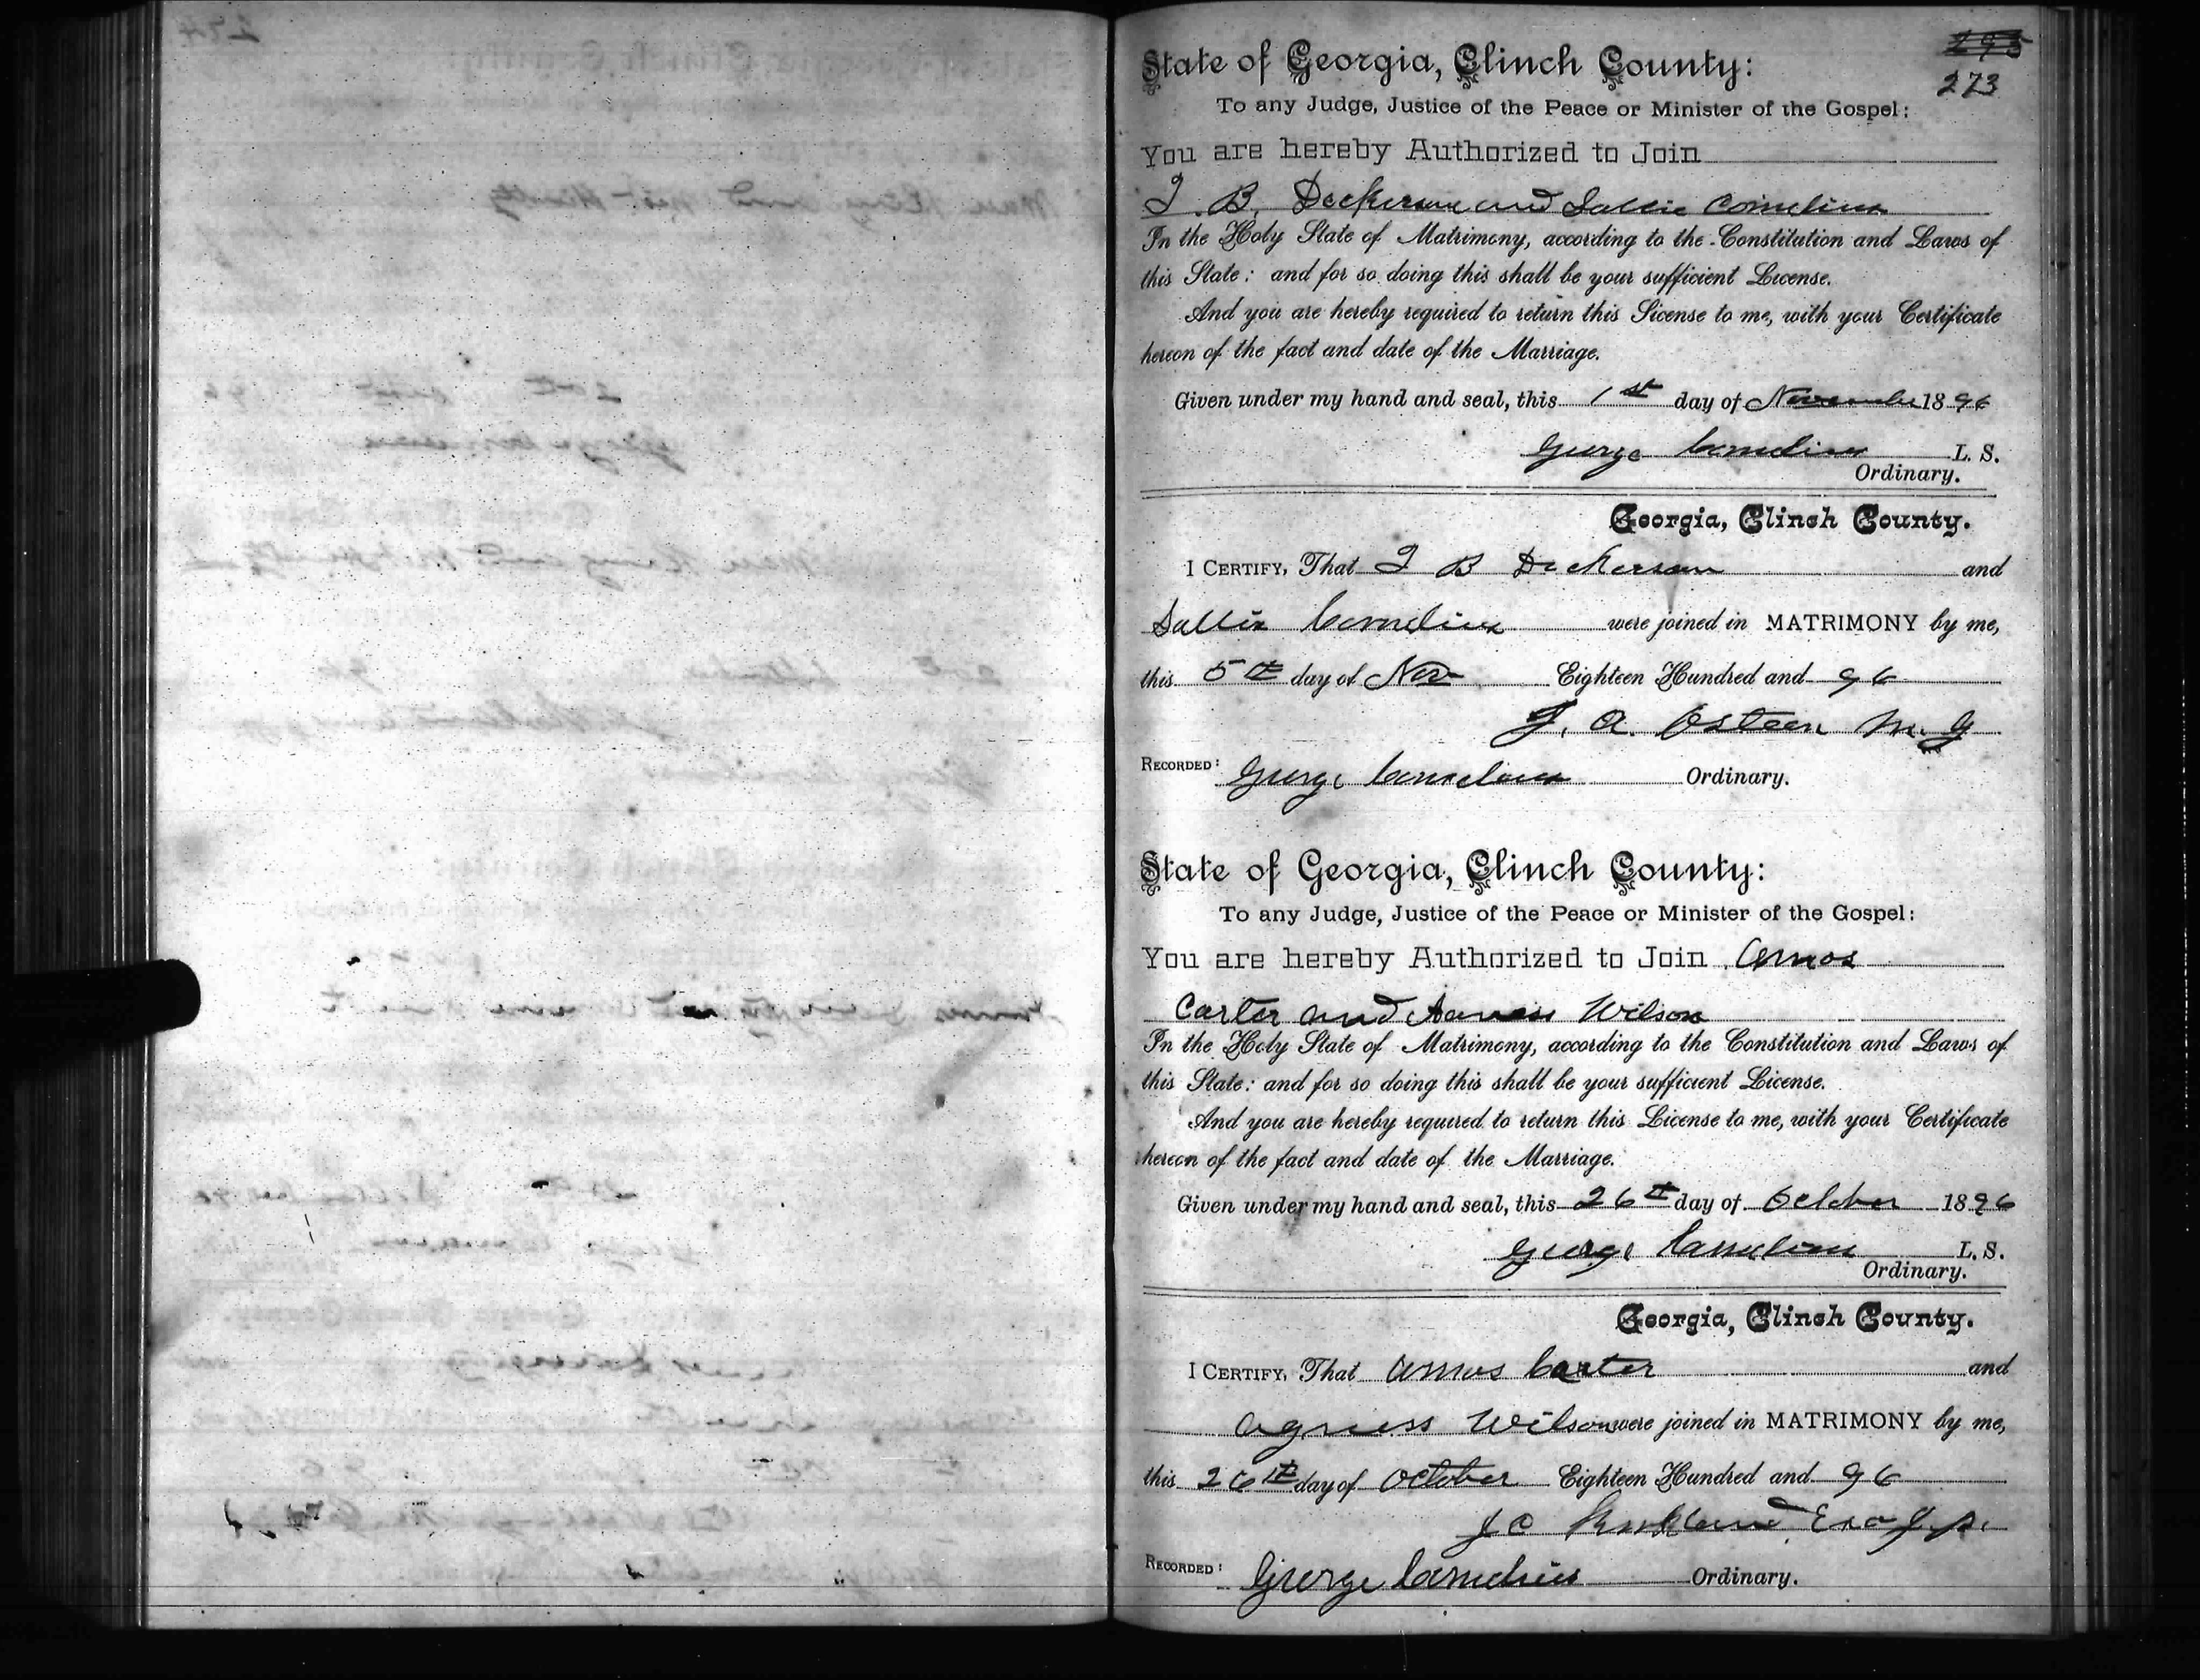 295
273
State of Georgia, Clinch County:
To any Judge, Justice of the Peace or Minister of the Gospel:
You are hereby Authorized to Join
J. B. Dickerson and Sallie Cornelius
In the Holy State of Matrimony, according to the Constitution and Laws of
this State: and for so doing this shall be your sufficient License.
And you are hereby required to return this License to me, with your Certificate
hereon of the fact and date of the Marriage.
Given under my hand and seal, this 1st day of November 1896
George Cornelius L. S.
Ordinary.
Georgia, Clinch County.
I CERTIFY, That J B Dickerson and
Sallie Cornelius were joined in MATRIMONY by me,
this 5th day of Nov Eighteen Hundred and 96
J. A. Osteen M. G
RECORDED: George Cornelius Ordinary.
State of Georgia, Clinch County:
To any Judge, Justice of the Peace or Minister of the Gospel:
You are hereby Authorized to Join Amos
Carter and Wilson
In the Holy State of Matrimony, according to the Constitution and Laws of
this State: and for so doing this shall be your sufficient License.
And you are hereby required to return this License to me, with your Certificate
hereon of the fact and date of the Marriage.
Given under my hand and seal, this 26th day of October 1896
George Cornelius L. S.
Ordinary.
Georgia, Clinch County.
I CERTIFY, That Amos Carter and
Agness Wilson were joined in MATRIMONY by me,
this 26th day of October Eighteen Hundred and 96
J C Kirkland
RECORDED: George Cornelius Ordinary.